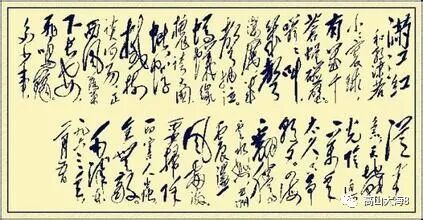 满江红
和郭沫若
小小寰球
有几个
苍蝇碰壁
嗡嗡叫
几声
凄厉几
声抽泣
蚂蚁缘
槐夸大国
蚍蜉
撼树
谈何易正
西风落叶
下长安
飞鸣镝
多少事
从来
急天地转
光阴迫
一万年
太久只争
朝夕四海
翻腾
云水怒五洲
震荡
风雷激
要扫除
一切害人虫
全无敌
毛泽东
一九六三
高山大海8